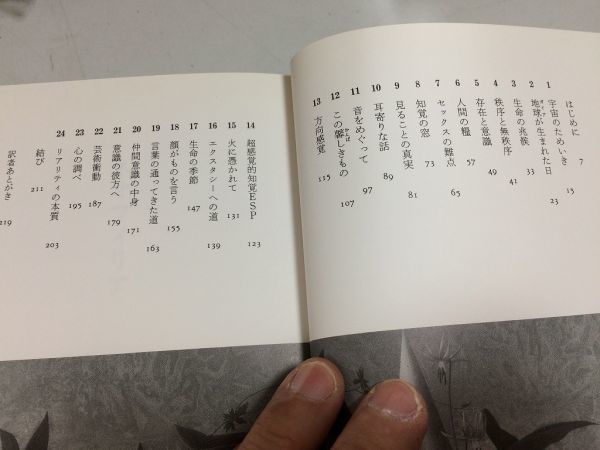 はじめに 7
1 宇宙のためいき 15
2 地球が生まれた日 23
3 生命の兆候 33
4 秩序と無秩序 41
5 存在と意識 49
6 人間の糧
7 セックスの難点 65
8 知覚の窓 73
9 見ることの真実 81
10 耳寄りな話 89
11 音をめぐって 97
12 この馨しきもの 107
13 方向感覚 115
14 超感覚的知覚ESP 123
15 火に憑かれて 131
16 エクスタシーへの道 139
17 生命の季節 147
18 顔がものを言う 155
19 言葉の通ってきた道 163
20 仲間意識の中身 171
21 意識の彼方へ 179
22 芸術衝動 187
23 心の調べ 195
24 リアリティの本質 203
結び 211
訳者あとがき 219